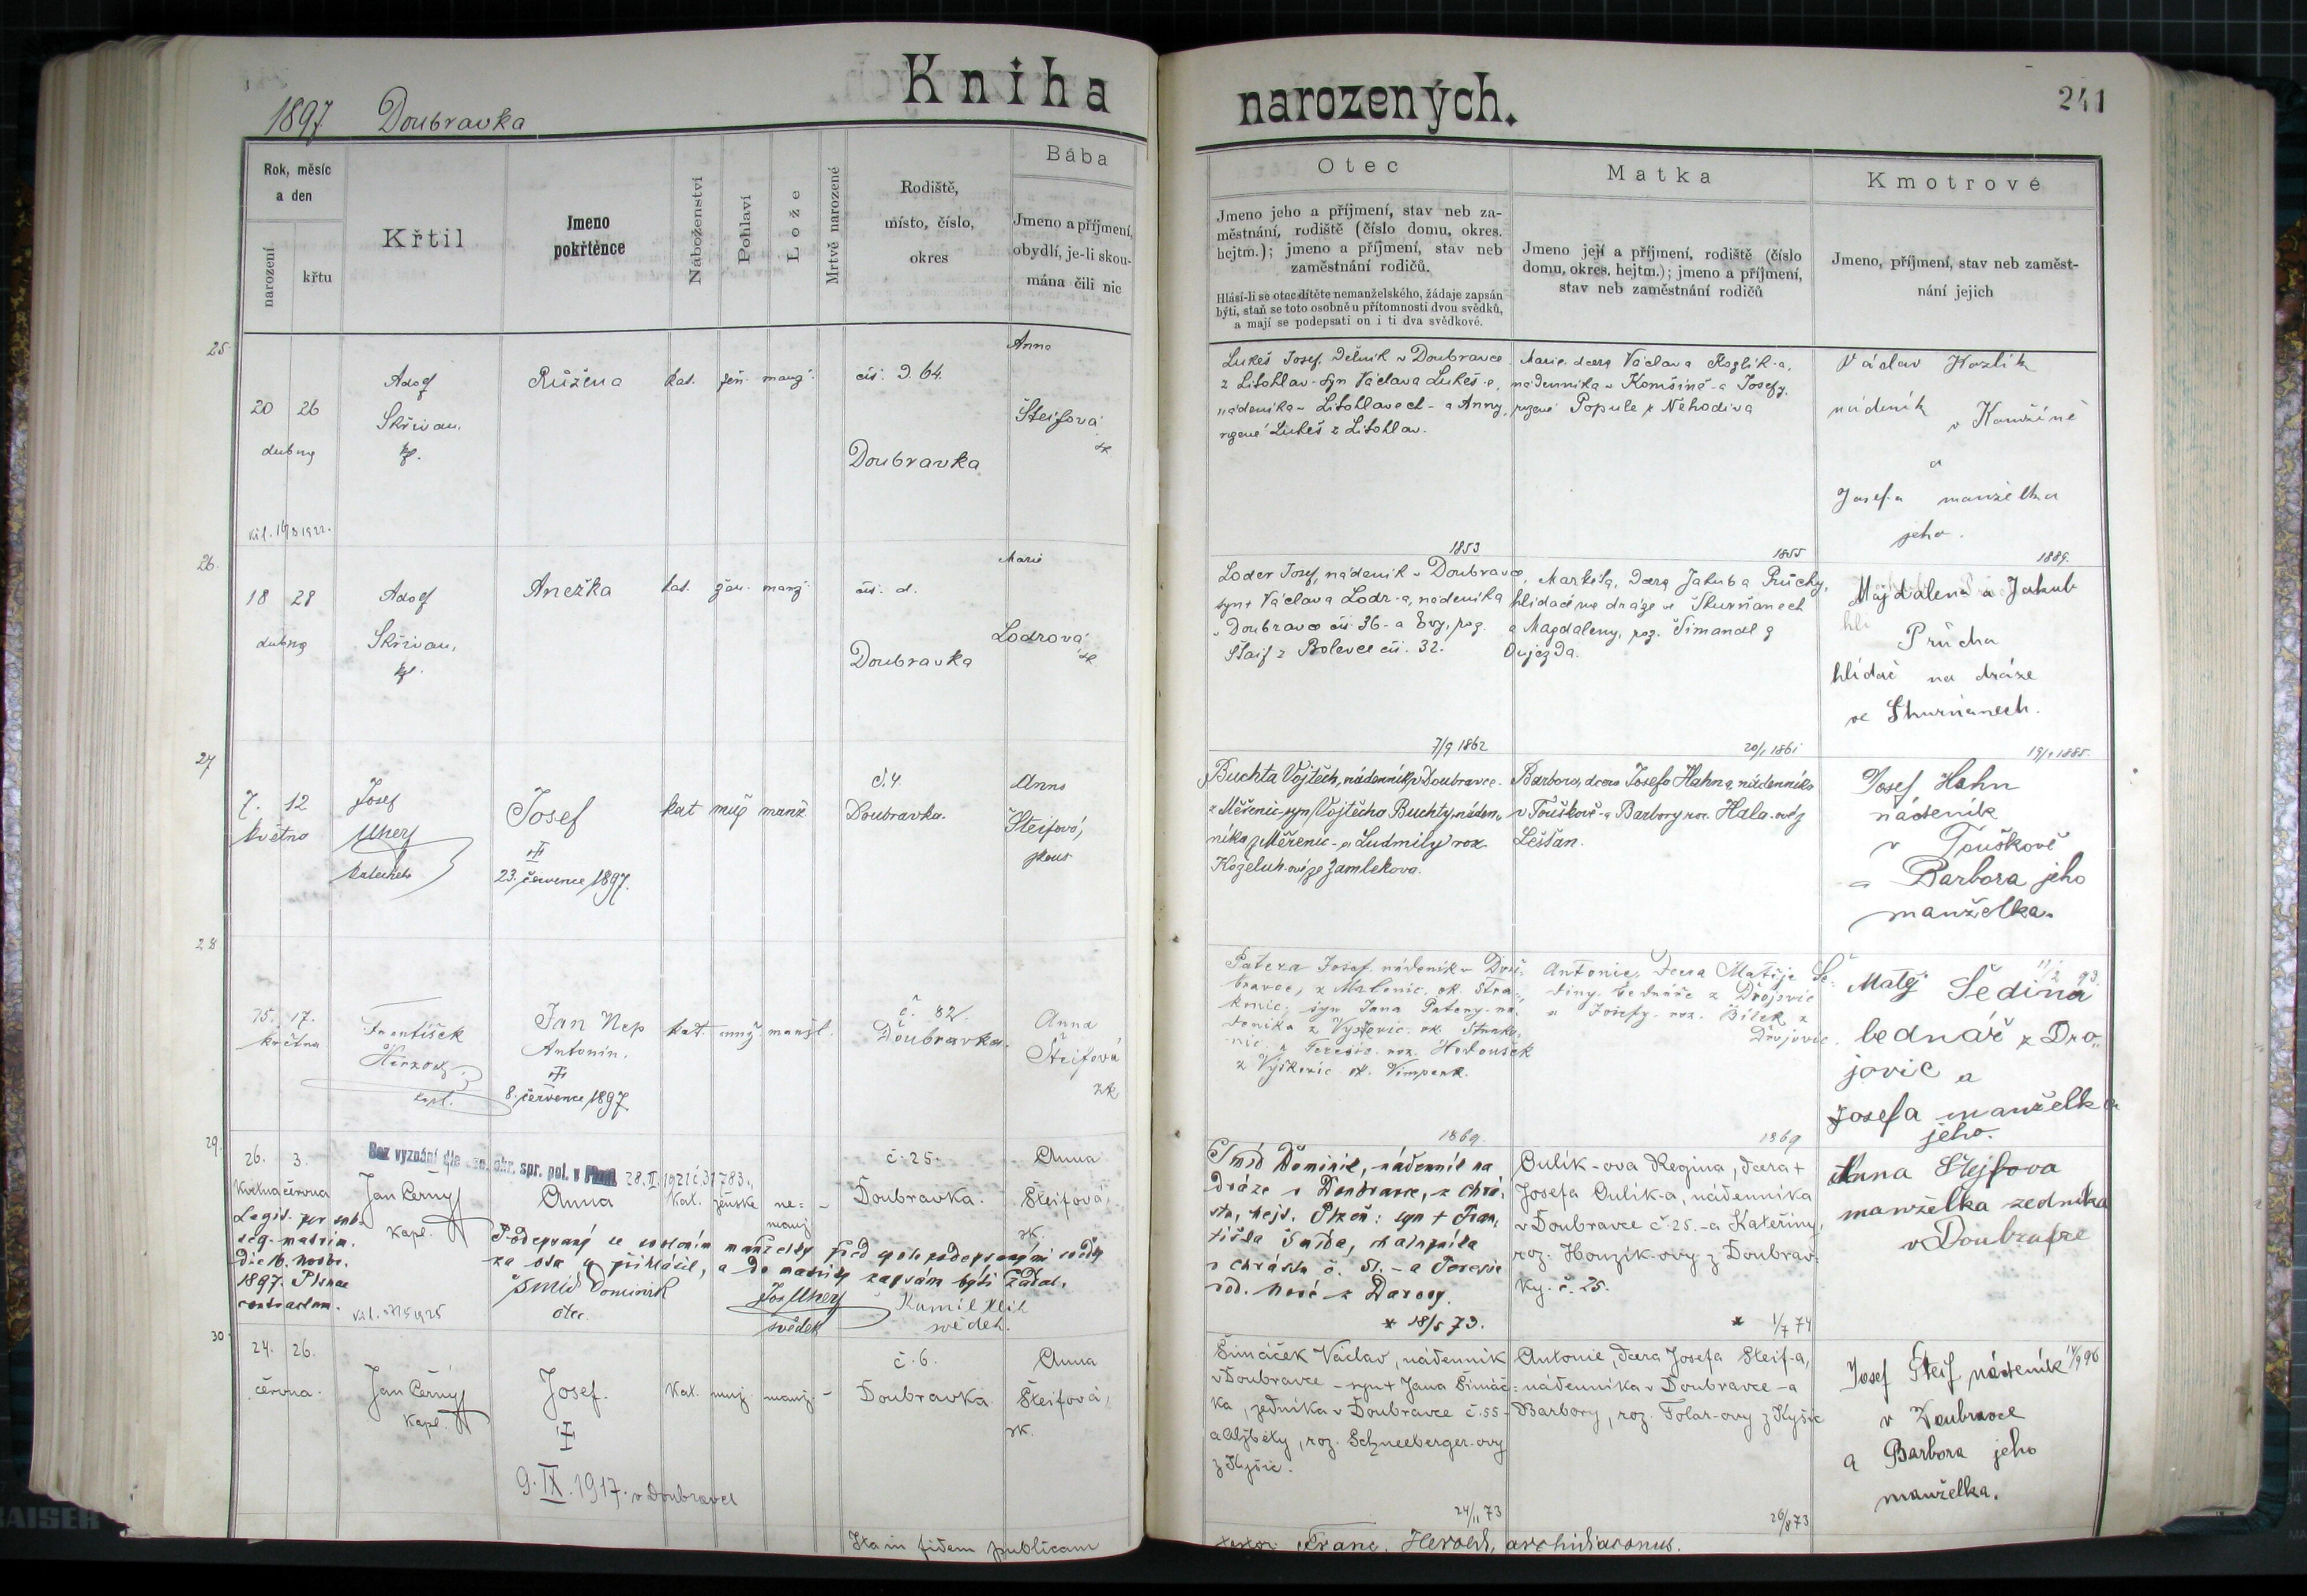 Kniha narozených.
241
1897 Doubravka
Rok, měsíc
a den
narození
křtu
Křtil
Jmeno
pokřtěnce
Náboženství
Pohlaví
Lože
Mrtvě narozené
Rodiště,
místo, číslo,
okres
Bába
Jmeno a příjmení,
obydlí, je-li skou-
mána čili nic
Otec
Jmeno jeho a příjmení, stav neb za-
městnání, rodiště (číslo domu, okres.
hejtm.); jmeno a příjmení, stav neb
zaměstnání rodičů.
Hlásí-li se otec dítěte nemanželského, žádaje zapsán
býti, staň se toto osobně u přítomnosti dvou svědků,
a mají se podepsati on i ti dva svědkové.
Matka
Jmeno její a příjmení, rodiště (číslo
domu, okres. hejtm.); jmeno a příjmení,
stav neb zaměstnání rodičů
Kmotrové
Jmeno, příjmení, stav neb zaměst-
nání jejich
25
20 26
dubna
Adolf
Skřivan,
kpl.
Růžena
kat. žen. manž.
čís. d. 64.
Doubravka
Anna
Šteifová
zk
Lukeš Josef, dělník v Doubravce
z Litohlav - syn Václava Lukeš-e,
nádeníka v Litohlavech - a Anny,
rozené Lukeš z Litohlav.
1853
Marie, dcera Václava Kozlík-a,
nádenníka v Komšíně - a Josefy,
rozené Popule z Něhodiva
1855
Václav Kozlík
nádeník
v Komšíně
a
Josefa manželka
jeho.
1889.
26.
18 28
dubna
Adolf
Skřivan,
kpl.
Anežka
kat. žen. manž.
čís. d.
Doubravka
Marie
Lodrová
zk
Loder Josef, nádeník v Doubravce,
syn + Václava Lodr-a, nádeníka
v Doubravce čís. 36 - a Evy, roz.
Štaif z Bolevce čís. 32.
7/9 1862
Markéta, dcera Jakuba Průchy,
hlídače na dráze ve Skvrňanech
a Magdaleny, roz. Šimandl z
Oujezda.
20/1 1861
Majdalena a Jakub
Průcha
hlídač na dráze
ve Skvrňanech.
19/1 1885.
27
7. 12
května
Josef
Uher
katecheta
Josef
23. července 1897.
kat muž manž
č. 4.
Doubravka.
Anna
Šteifová,
zkouš
Buchta Vojtěch, nádenník v Doubravce -
z Měřenic - syn Vojtěcha Buchty, náden-
níka z Měřenic - a Ludmily roz.
Koželuh-ové ze Zamlekova.
Barbora, dcera Josefa Hahna, nádenníka
v Touškově - a Barbory roz. Hala-ové z
Lešťan.
Josef Hahn
nádeník
v Touškově
a Barbora jeho
manželka.
28
15. 17.
května
František
Herzog
kapl.
Jan Nep
Antonín.
8. července 1897
kat. muž. manžl.
č. 82.
Doubravka.
Anna
Šteifová
zk
Patera Josef, nádeník v Dou-
bravce, z Malenic, ok. Stra-
konic, syn Jana Patery, ná-
deníka z Vyškovic, ok. Strako-
nic, a Terezie roz. Hodoušek
z Vyškovic ok. Vimperk.
1869.
Antonie, dcera Matěje Še-
diny, bednáře z Drojovic
a Josefy, roz. Bílek z
Drojovic.
1869
Matěj Šedina
11/2 93.
bednář z Dro-
jovic a
Josefa manželka
jeho.
29.
26. 3.
května června
Legit. per sub-
seq. matrim.
die 16. novbr.
1897. Plsnae
contractum.
Bez vyznání dle spr. pol. v Plzni 28.II.1921 č. 31783.
Jan Černý
kapl.
Anna
Kat. ženské ne-
manž
č. 25.
Doubravka.
Anna
Šteifová,
zk.
Podepsaný se svolením manželky před spolupodepsanými svědky
za otce se přihlásil, a do matriky zapsán býti žádal.
Šmíd Dominik
otec.
Jos Uher
svědek
Kamil
svědek.
Šmíd Dominik, nádenník na
dráze v Doubravce, z Chrá-
stu, hejt. Plzeň: syn + Fran-
tiška Šmída, chalupníka
v Chrástu č. 51. - a Terezie
rod. Nové z Darové.
* 18/5 73.
Oulík-ova Regina, dcera +
Josefa Oulík-a, nádenníka
v Doubravce č. 25. - a Kateřiny,
roz. Houzík-ovy z Doubrav-
ky. č. 25.
* 1/7 74
Anna Štejfova
manželka zedníka
v Doubravce
30
24. 26.
června.
Jan Černý
kapl.
Josef.
9. IX. 1917. v Doubravce
Kat. muž. manž. -
č. 6.
Doubravka
Anna
Šteifová,
zk.
Šimáček Václav, nádenník
v Doubravce - syn + Jana Šimáč-
ka, zedníka v Doubravce č. 55 -
a Alžběty, roz. Schneeberger-ovy
z Kyšic.
24/11 73
Antonie, dcera Josefa Šteif-a,
nádenníka v Doubravce - a
Barbory, roz. Tolar-ovy z Kyšic
26/8 73
Josef Šteif nádeník
14/9 96
v Doubravce
a Barbora jeho
manželka.
Ita in fidem publicam testor Franc. Herold, archidiaconus.